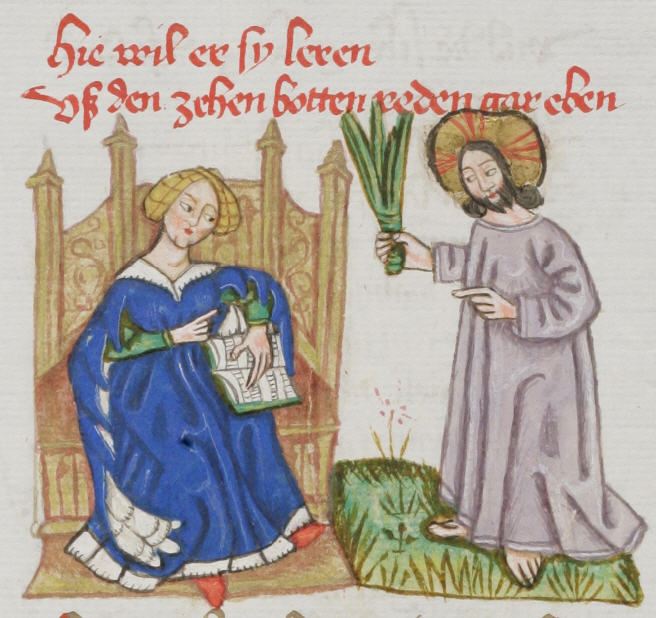 Hie wil er sy leren
Vß den zehen botten reden gar eben